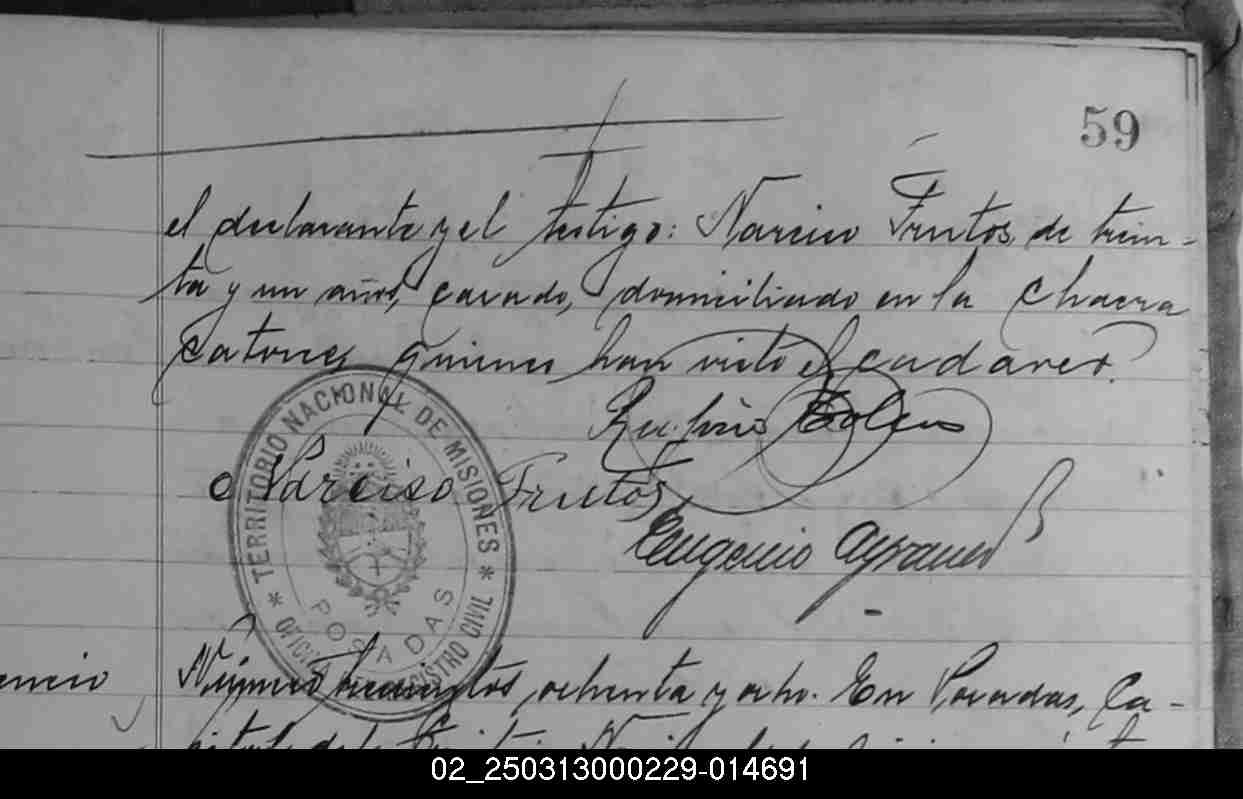 59
el declarante y el testigo: Narciso Frutos, de trein-
ta y un años, casado, domiciliado en la chacra
catorce, quienes han visto el cadaver.
Narciso Frutos
Eugenio
TERRITORIO NACIONAL DE MISIONES * REGISTRO CIVIL * OFICINA
POSADAS
Número trescientos ochenta y ocho. En Posadas, Ca-
pital del Territorio
02_250313000229-014691